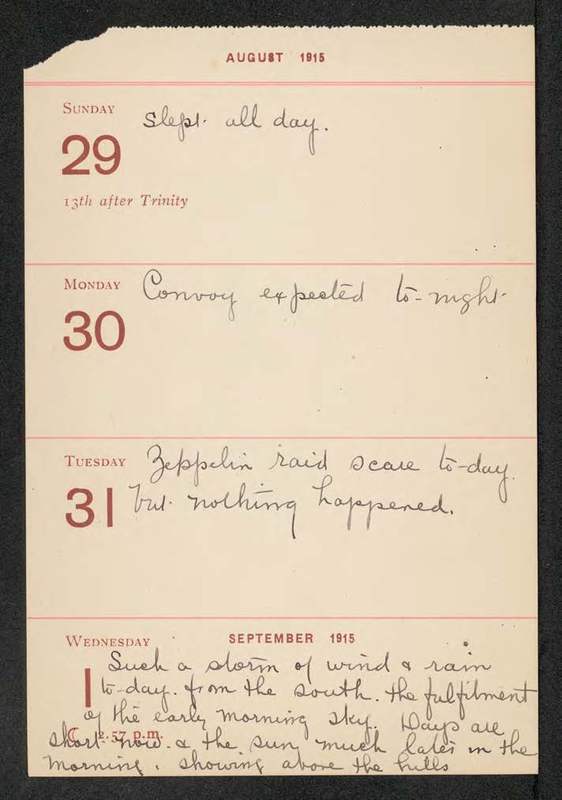 AUGUST 1915
SUNDAY
29
13th after Trinity
Slept all day.
MONDAY
30
Convoy expected to-night
TUESDAY
31
Zeppelin raid scare to-day
but nothing happened.
WEDNESDAY
SEPTEMBER 1915
1
Such a storm of wind & rain
to-day. from the south. the fulfilment
of the early morning sky. Days are
☾ 2.57 p.m.
short now. & the sun much later in the
morning. showing above the hills